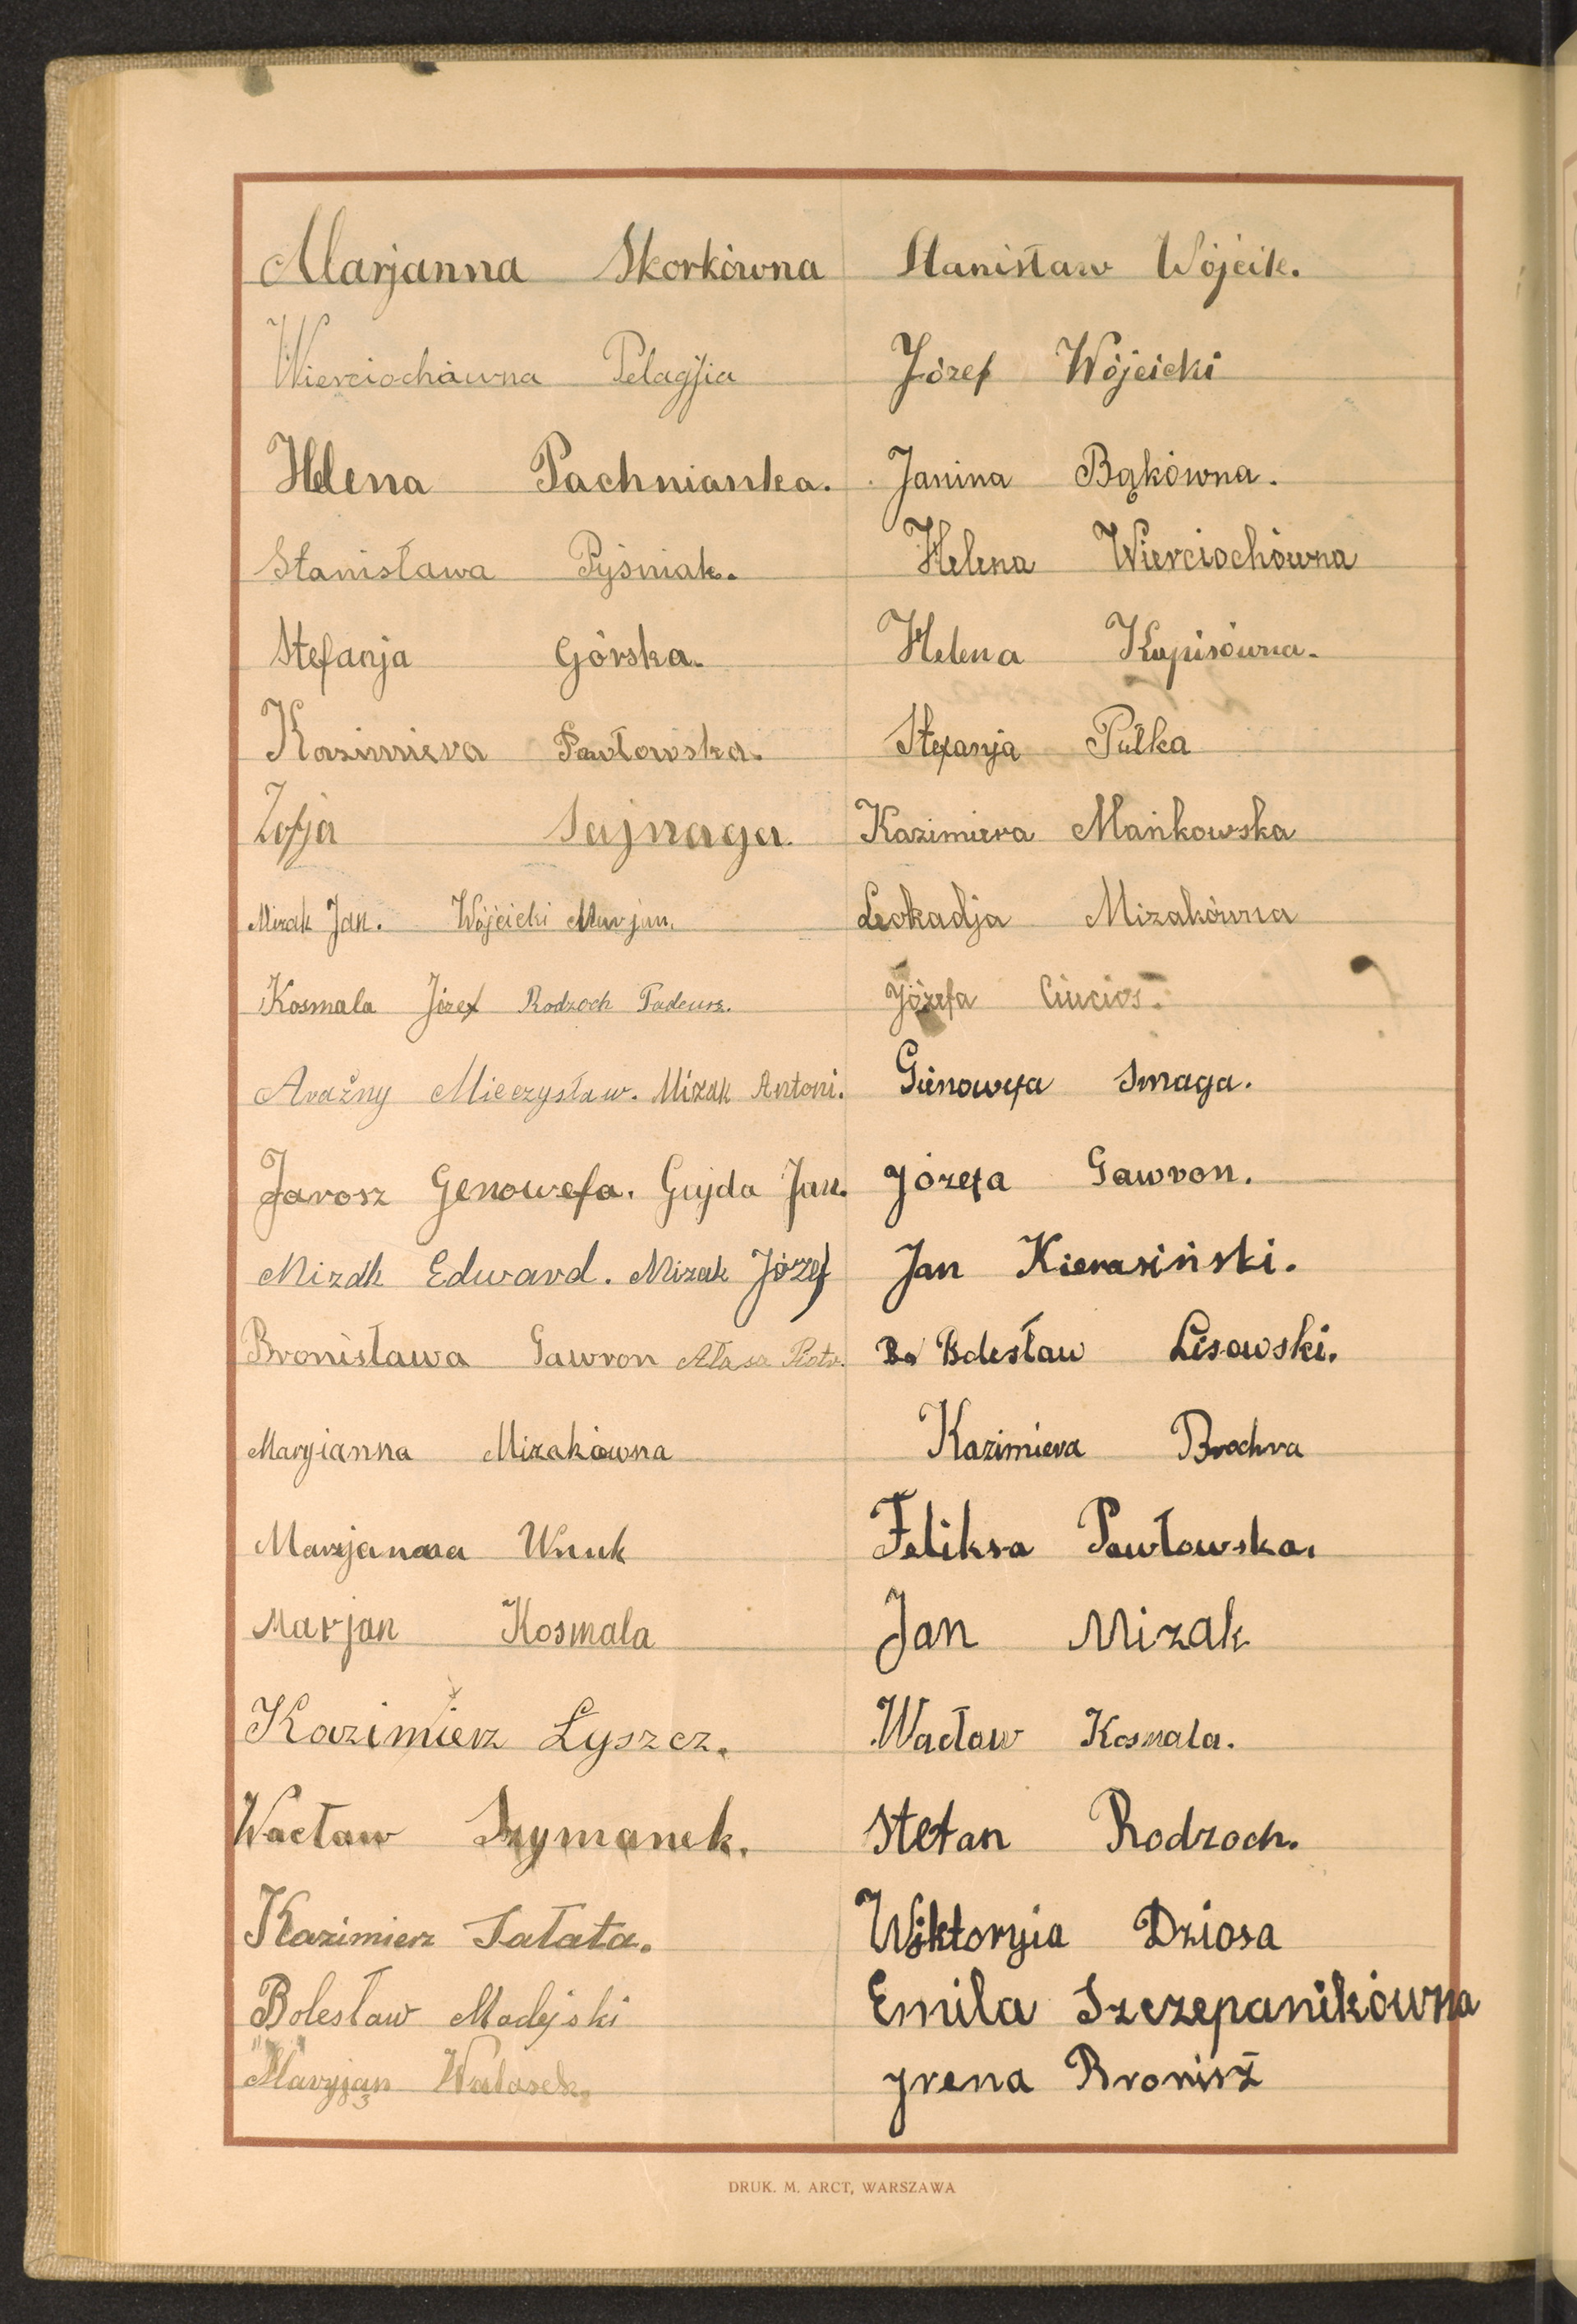 Marjanna Skorkówna
Wierciochówna Pelagija
Helena Pachnianka.
Stanisława Pyśniak.
Stefanja Górska.
Kazimiera Pawłowska.
Zofja Sajnaga.
Mizak Jan. Wójcicki Marjan.
Kosmala Józef Rodzoch Tadeusz.
Araźny Mieczysław. Mizak Antoni.
Jarosz Genowefa. Gujda Jan.
Mizak Edward. Mizak Józef
Bronisława Gawron Ałasa Piotr.
Maryianna Mizakówna
Marjanna Wnuk
Marjan Kosmala
Kazimierz Łyszcz.
Wacław Szymanek.
Kazimierz Sałata.
Bolesław Madejski
Maryjan Walasek.
Stanisław Wójcik.
Józef Wójcicki
Janina Bąkówna.
Helena Wierciochówna
Helena Kupisówna.
Stefanja Pułka
Kazimiera Mańkowska
Leokadja Mizakówna
Józefa Ciucioś.
Gienowefa Smaga.
Józefa Gawron.
Jan Kierasiński.
Bo Bolesław Lisowski.
Kazimiera Brochra
Feliksa Pawłowska.
Jan Mizak
Wacław Kosmala.
Stefan Rodzoch.
Wiktoryia Dziosa
Emila Szczepanikówna
Jrena Bronisz
DRUK. M. ARCT, WARSZAWA